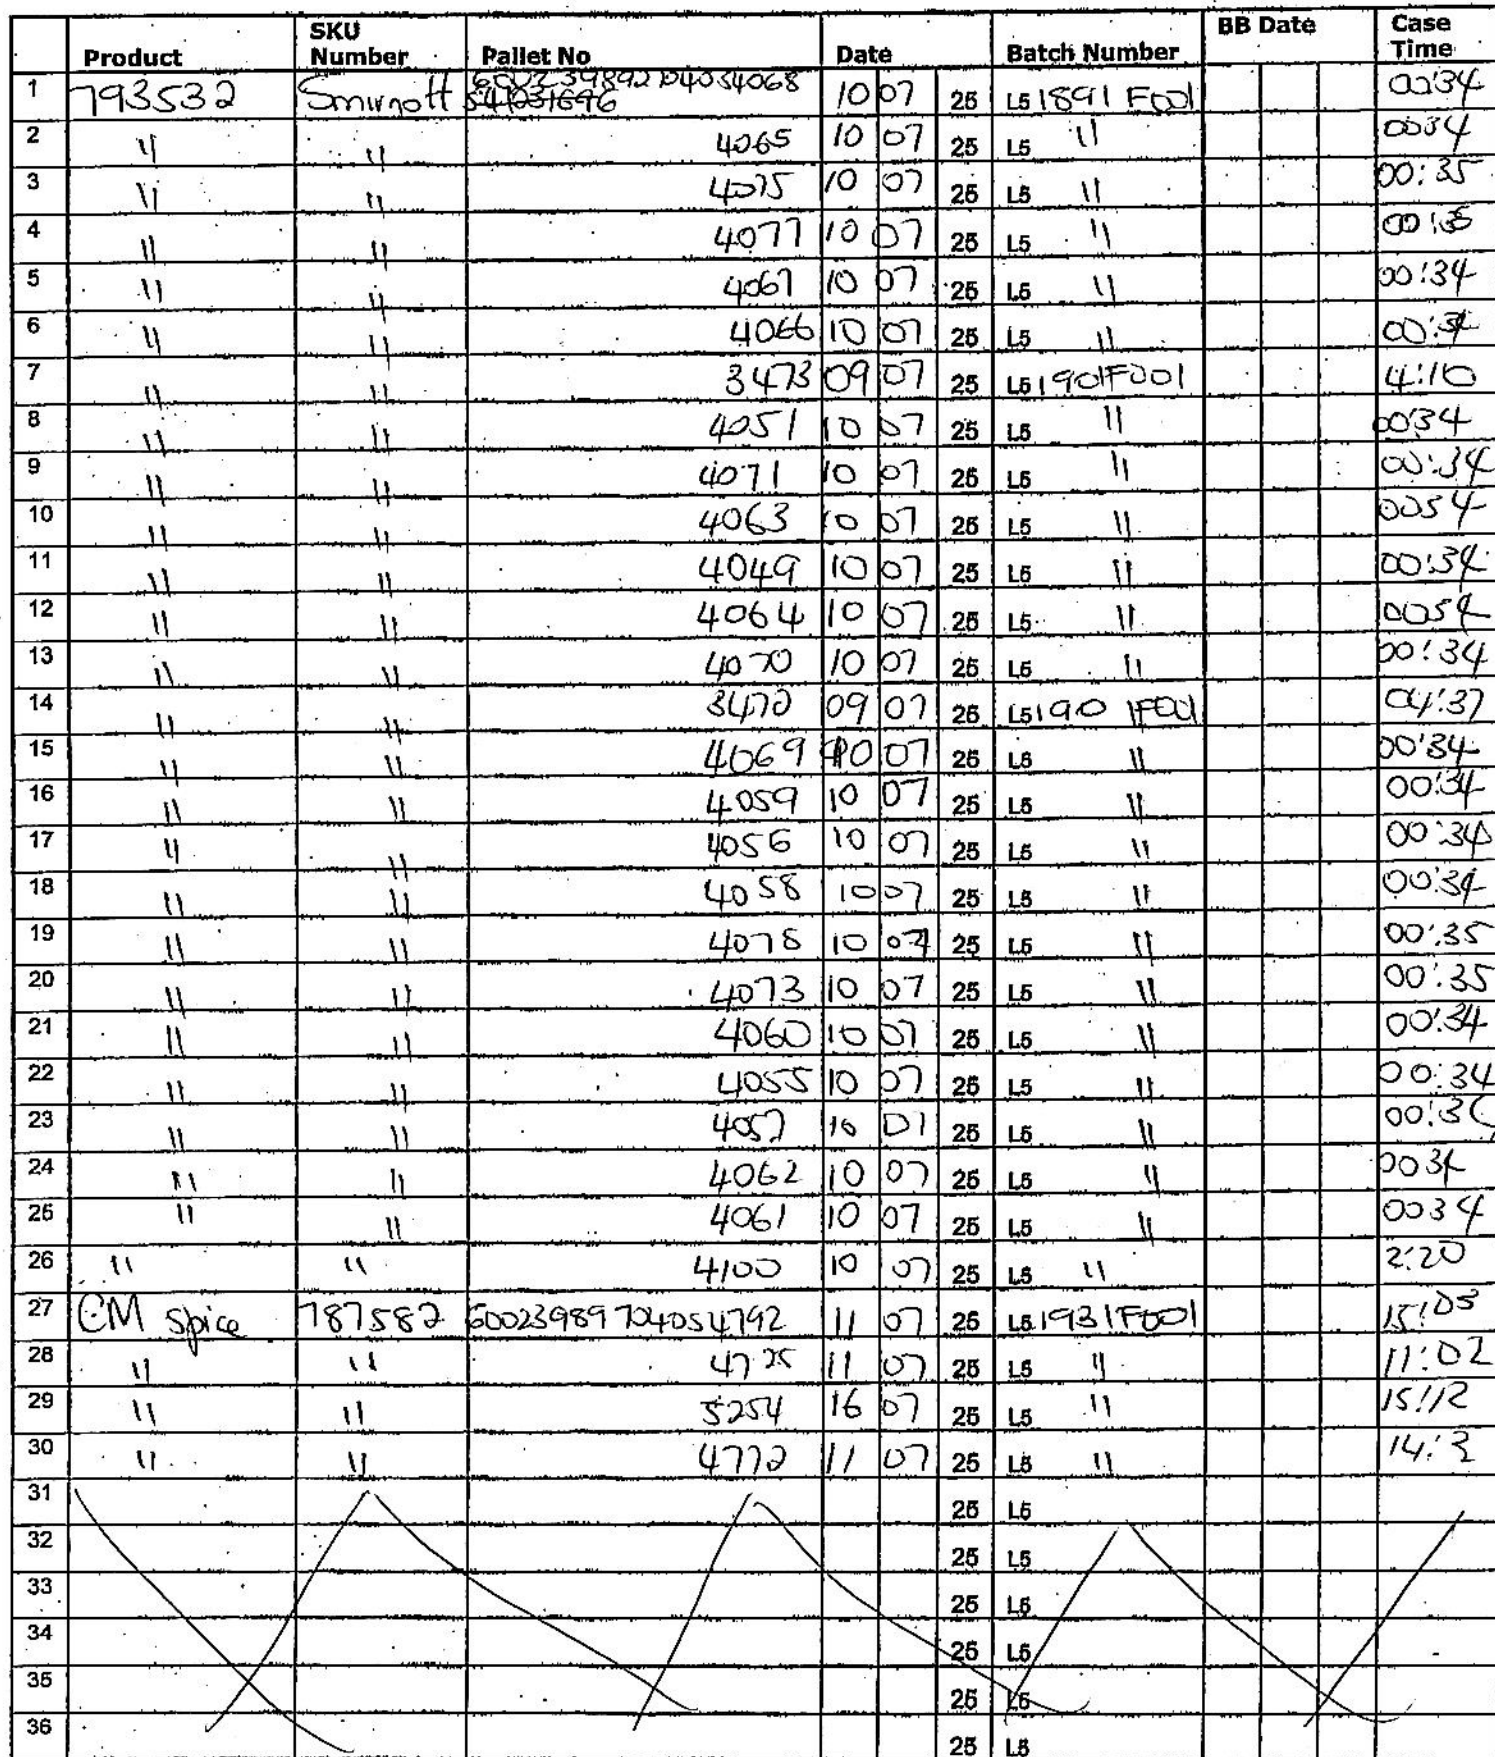 Product SKU Number Pallet No Date Batch Number BB Date Case Time
1 793532 Smirnoff 10 07 25 L5 1891 F001 00:34
2 " " 4065 10 07 25 L5 " 0034
3 " " 4075 10 07 25 L5 " 00:35
4 " " 4077 10 07 25 L5 " 00:35
5 " " 4067 10 07 25 L5 " 00:34
6 " " 4066 10 07 25 L5 " 00:34
7 " " 3473 09 07 25 L5 1901F001 4:10
8 " " 4051 10 07 25 L5 " 00:34
9 " " 4071 10 07 25 L5 " 00:34
10 " " 4063 10 07 25 L5 "
11 " " 4049 10 07 25 L5 " 00:34
12 " " 4064 10 07 25 L5 "
13 " " 4070 10 07 25 L5 " 00:34
14 " " 3472 09 07 25 L5 190 1F001 04:37
15 " " 4069 10 07 25 L5 " 00:34
16 " " 4059 10 07 25 L5 " 00:34
17 " " 4056 10 07 25 L5 " 00:34
18 " " 4058 10 07 25 L5 " 00:34
19 " " 4078 10 07 25 L5 " 00:35
20 " " 4073 10 07 25 L5 " 00:35
21 " " 4060 10 07 25 L5 " 00:34
22 " " 4055 10 07 25 L5 " 00:34
23 " " 4057 10 07 25 L5 "
24 " " 4062 10 07 25 L5 " 0034
25 " " 4061 10 07 25 L5 " 0034
26 " " 4100 10 07 25 L5 " 2:20
27 CM Spice 787582 60023989704054792 11 07 25 L5 1931F001 15:03
28 " " 4725 11 07 25 L5 " 11:02
29 " " 5254 16 07 25 L5 " 15:12
30 " " 4772 11 07 25 L5 "
31 25 L5
32 25 L5
33 25 L5
34 25 L5
35 25 L5
36 25 L5